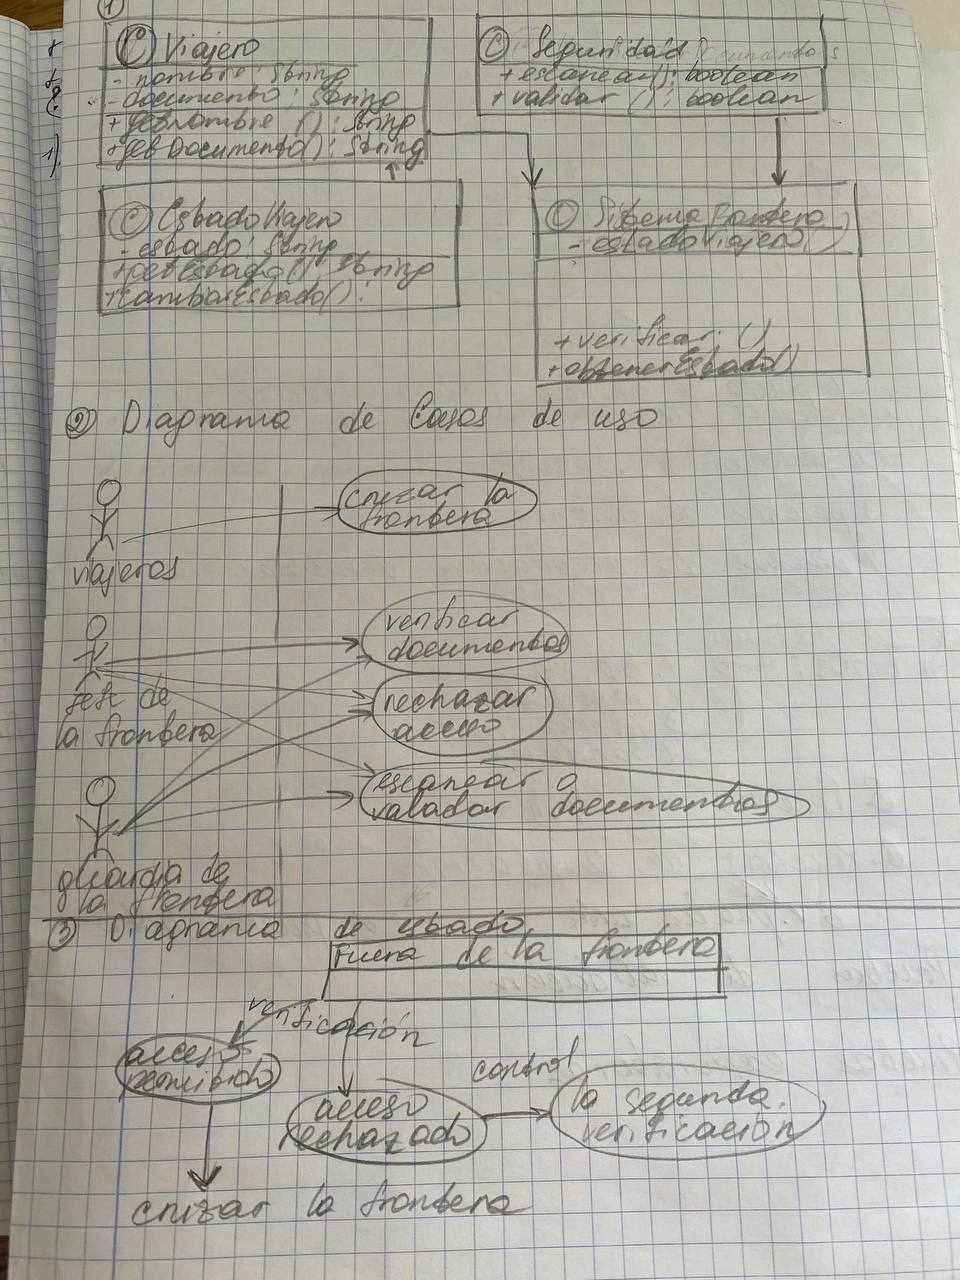 1
C Viajero
- nombre: String
- documento: String
+ getNombre (): String
+ getDocumento(): String
C Seguridad Documentos
+ escanear(): boolean
+ validar (): boolean
C EstadoViajero
- estado: String
+ getEstado(): String
+ cambiarEstado():
C Sistema Frontera
- estadoViajero()
+ verificar ()
+ obtenerEstado()
2 Diagrama de Casos de uso
viajeros
cruzar la
frontera
jefe de
la frontera
verificar
documentos
rechazar
acceso
escanear o
valadar documentos
guardia de
la frontera
3 Diagrama de estado
Fuera de la frontera
verificación
acceso
permitido
acceso
rechazado
control
la segunda
verificación
cruzar la frontera